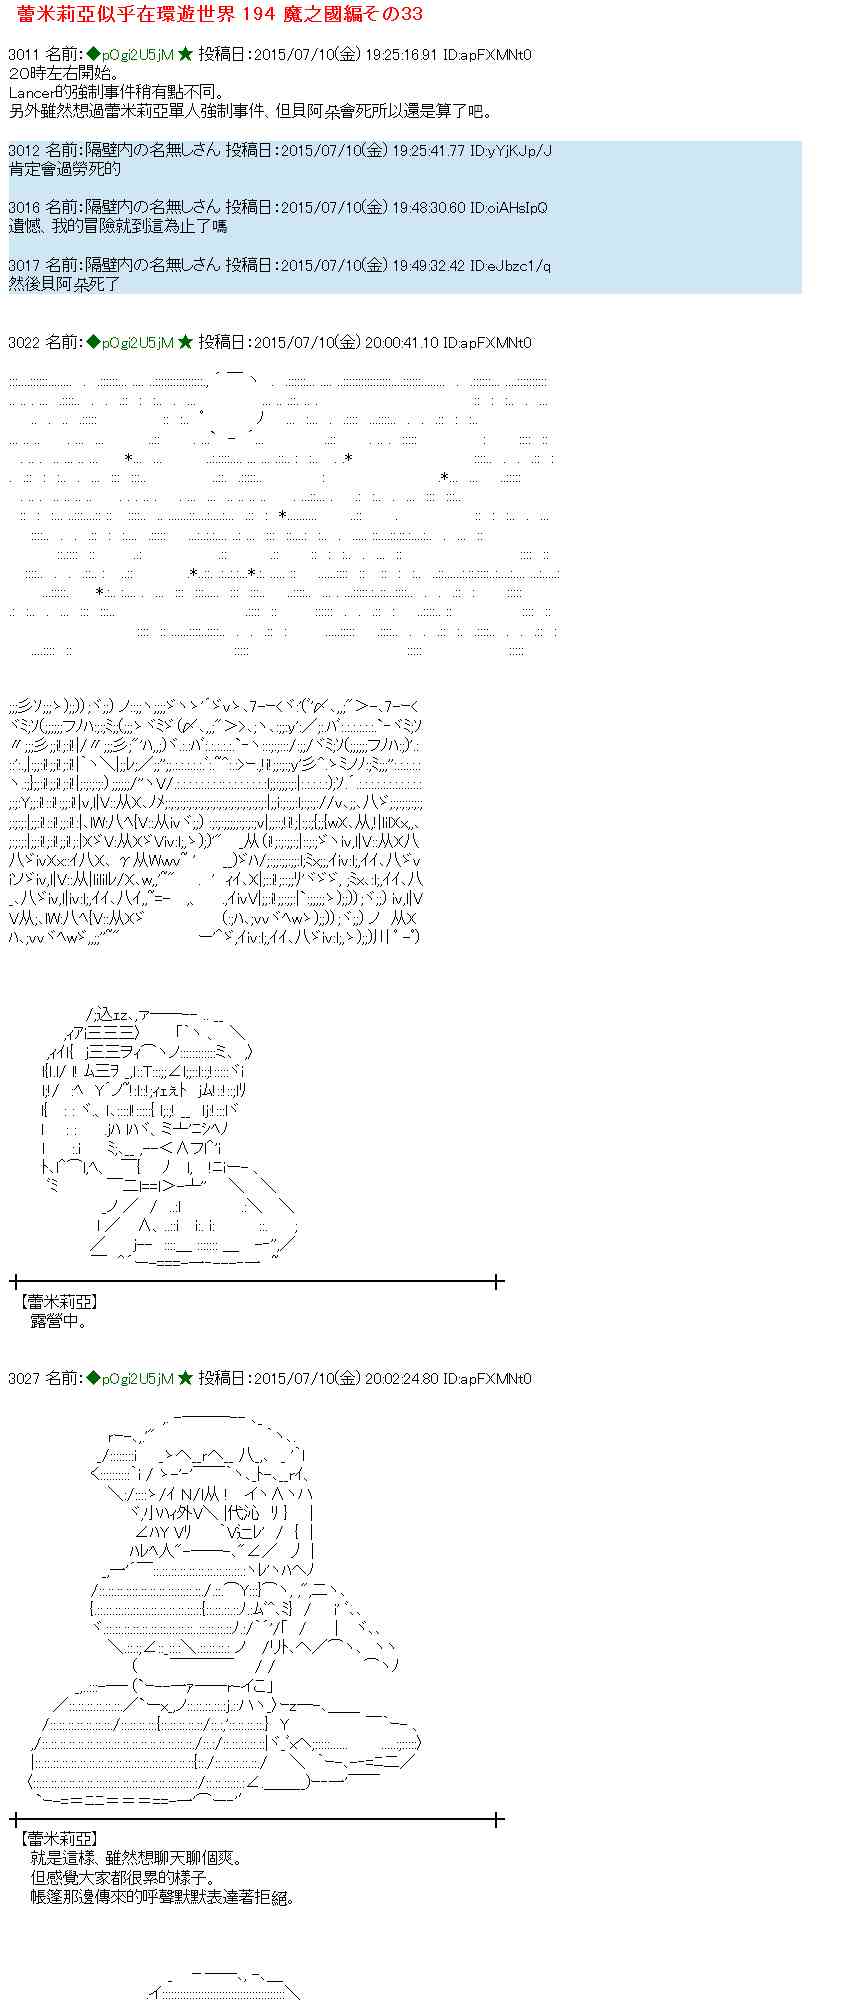 蕾米莉亞似乎在環遊世界 194 魔之國編その33
3011 名前：◆pOgi2U5jM ★ 投稿日：2015/07/10(金) 19:25:16.91 ID:apFXMNt0
２０時左右開始。
Lancer的強制事件稍有點不同。
另外雖然想過蕾米莉亞單人強制事件、但貝阿朵會死所以還是算了吧。
3012 名前：隔壁内の名無しさん 投稿日：2015/07/10(金) 19:25:41.77 ID:yYjKJp/J
肯定會過勞死的
3016 名前：隔壁内の名無しさん 投稿日：2015/07/10(金) 19:48:30.60 ID:oiAHsIpQ
遺憾、我的冒險就到這為止了嗎
3017 名前：隔壁内の名無しさん 投稿日：2015/07/10(金) 19:49:32.42 ID:eJbzc1/q
然後貝阿朵死了
3022 名前：◆pOgi2U5jM ★ 投稿日：2015/07/10(金) 20:00:41.10 ID:apFXMNt0
【蕾米莉亞】
露營中。
3027 名前：◆pOgi2U5jM ★ 投稿日：2015/07/10(金) 20:02:24.80 ID:apFXMNt0
【蕾米莉亞】
就是這樣、雖然想聊天聊個爽。
但感覺大家都很累的樣子。
帳篷那邊傳來的呼聲默默表達著拒絕。